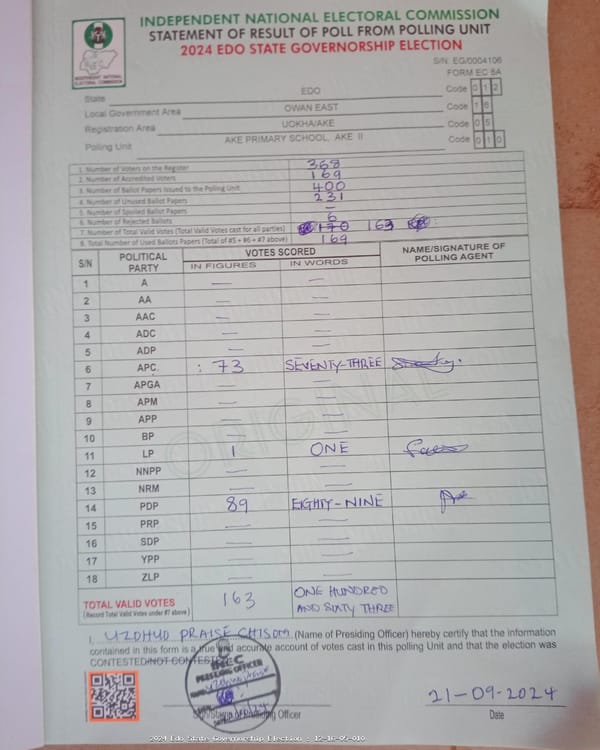 INDEPENDENT NATIONAL ELECTORAL COMMISSION
STATEMENT OF RESULT OF POLL FROM POLLING UNIT
2024 EDO STATE GOVERNORSHIP ELECTION
INDEPENDENT NATIONAL
ELECTORAL COMMISSION
S/N: EG/0004106
FORM EC 8A
State EDO Code 012
Local Government Area OWAN EAST Code 16
Registration Area UOKHA/AKE Code 05
Polling Unit AKE PRIMARY SCHOOL, AKE II Code 010
1. Number of Voters on the Register 368
2. Number of Accredited Voters 169
3. Number of Ballot Papers Issued to the Polling Unit 400
4. Number of Unused Ballot Papers 231
5. Number of Spoiled Ballot Papers —
6. Number of Rejected Ballots 6
7. Number of Total Valid Votes (Total Valid Votes cast for all parties) 170 163
8. Total Number of Used Ballots Papers (Total of #5 + #6 + #7 above) 169
S/N POLITICAL PARTY VOTES SCORED NAME/SIGNATURE OF POLLING AGENT
IN FIGURES IN WORDS
1 A — —
2 AA — —
3 AAC — —
4 ADC — —
5 ADP — —
6 APC : 73 SEVENTY-THREE
7 APGA — —
8 APM — —
9 APP — —
10 BP — —
11 LP 1 ONE
12 NNPP — —
13 NRM — —
14 PDP 89 EIGHTY-NINE
15 PRP — —
16 SDP — —
17 YPP — —
18 ZLP — —
ORIGINAL
TOTAL VALID VOTES 163 ONE HUNDRED
(Record Total Valid Votes under #7 above) AND SIXTY THREE
I, UZOHUO PRAISE CHISOM (Name of Presiding Officer) hereby certify that the information
contained in this form is a true and accurate account of votes cast in this polling Unit and that the election was
CONTESTED/NOT CONTESTED
INEC
PRESIDING OFFICER
21-09-2024
Sign/Stamp of Presiding Officer Date
2024 Edo State Governorship Election : 12-16-05-010